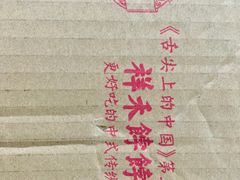 《舌尖上的中国》第
祥禾饽饽
更好吃的中式传统